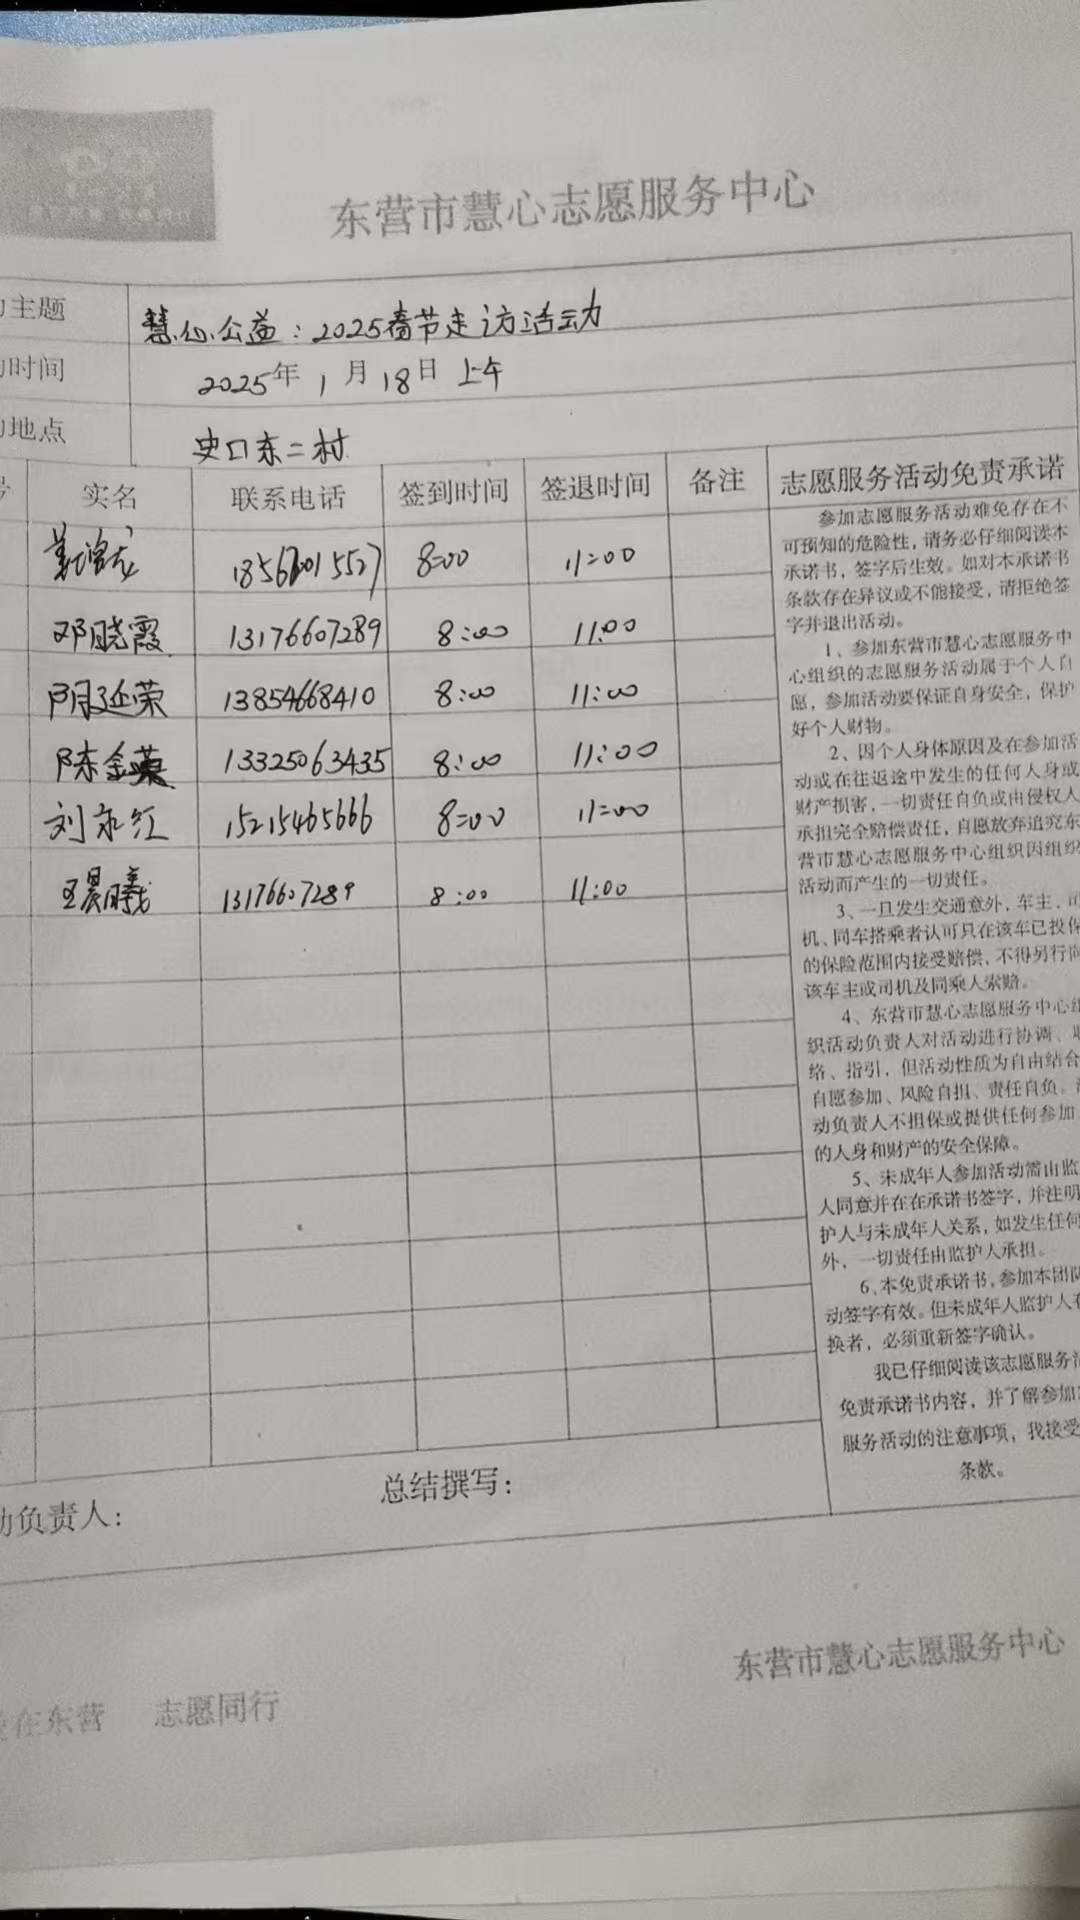 东营市慧心志愿服务中心
主题 慧心公益：2025春节走访活动
时间 2025年1月18日 上午
地点 史口东二村
实名 联系电话 签到时间 签退时间 备注 志愿服务活动免责承诺
8:00 11:00
邓晓霞 13176607289 8:00 11:00
延荣 13854668410 8:00 11:00
陈金 13325063435 8:00 11:00
刘永红 15215465666 8:00 11:00
王晨曦 13176607289 8:00 11:00
参加志愿服务活动难免存在不
可预知的危险性，请务必仔细阅读本
承诺书，签字后生效。如对本承诺书
条款存在异议或不能接受，请拒绝签
字并退出活动。
1、参加东营市慧心志愿服务中
心组织的志愿服务活动属于个人自
愿，参加活动要保证自身安全，保护
好个人财物。
2、因个人身体原因及在参加活
动或在往返途中发生的任何人身或
财产损害，一切责任自负或由侵权人
承担完全赔偿责任，自愿放弃追究东
营市慧心志愿服务中心组织因组织
活动而产生的一切责任。
3、一旦发生交通意外，车主、司
机、同车搭乘者认可只在该车已投保
的保险范围内接受赔偿，不得另行向
该车主或司机及同乘人索赔。
4、东营市慧心志愿服务中心组
织活动负责人对活动进行协调、联
络、指引，但活动性质为自由结合
自愿参加、风险自担、责任自负。
动负责人不担保或提供任何参加
的人身和财产的安全保障。
5、未成年人参加活动需由监
人同意并在在承诺书签字，并注明
护人与未成年人关系，如发生任何
外，一切责任由监护人承担。
6、本免责承诺书，参加本团队
动签字有效。但未成年人监护人有
换者，必须重新签字确认。
我已仔细阅读该志愿服务活
免责承诺书内容，并了解参加
服务活动的注意事项，我接受
条款。
动负责人： 总结撰写：
东营市慧心志愿服务中心
在东营 志愿同行